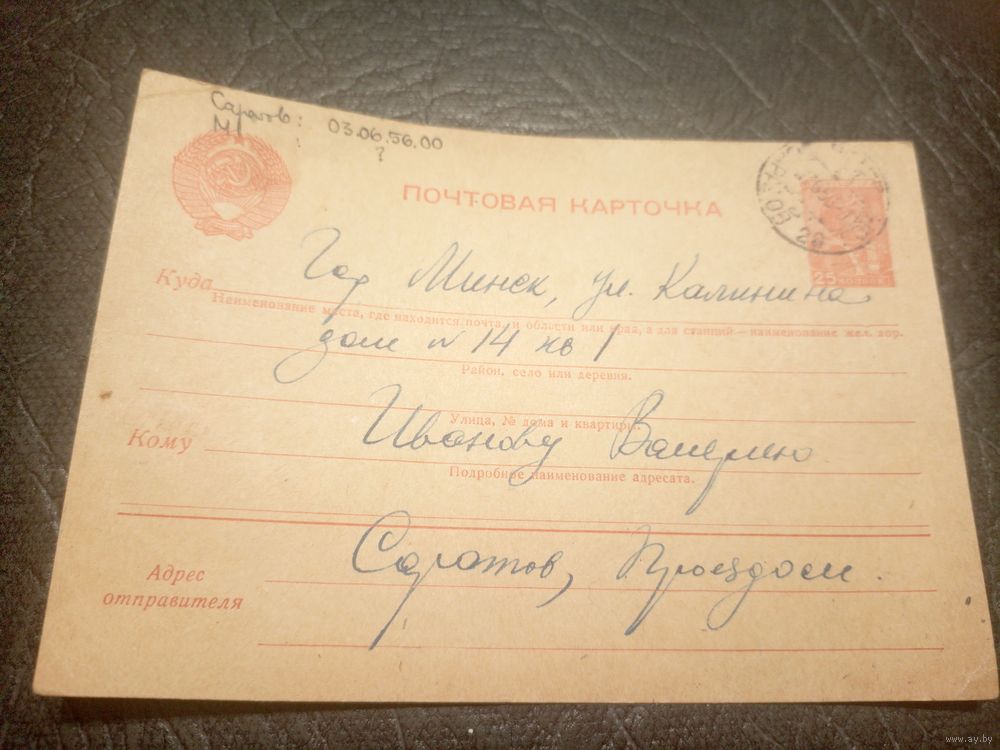 Саратов: 03.06.56.00
М ?
ПОЧТОВАЯ КАРТОЧКА
25 КОПЕЕК
Куда Гор Минск, ул. Калинина
Наименование места, где находится почта, и области или края, а для станций—наименование жел. дор.
дом № 14 кв 1
Район, село или деревня.
Улица, № дома и квартиры.
Кому Иванову Валерию
Подробное наименование адресата.
Саратов, Проездом.
Адрес
отправителя
www.ay.by